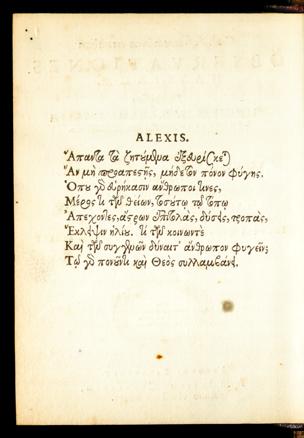 ALEXIS.
Ἅπαντα τὰ ζητούμενα ἐξευρίσκεται
Ἂν μὴ προαπεστῇς, μηδὲ τὸν πόνον φύγῃς.
Ὅπου γὰρ εὑρήκασιν ἄνθρωποί τινες,
Μέρος τι τῶν θείων, τοσούτῳ τῷ τόπῳ
Ἀπέχοντες, ἄστρων ἐπιτολὰς, δύσεις, τροπὰς,
Ἔκλειψιν ἡλίου. τί τῶν κοινῶν
Καὶ τῶν συγγενῶν δύναιτ' ἄνθρωπον φυγεῖν;
Τῷ γὰρ πονοῦντι καὶ Θεὸς συλλαμβάνει.